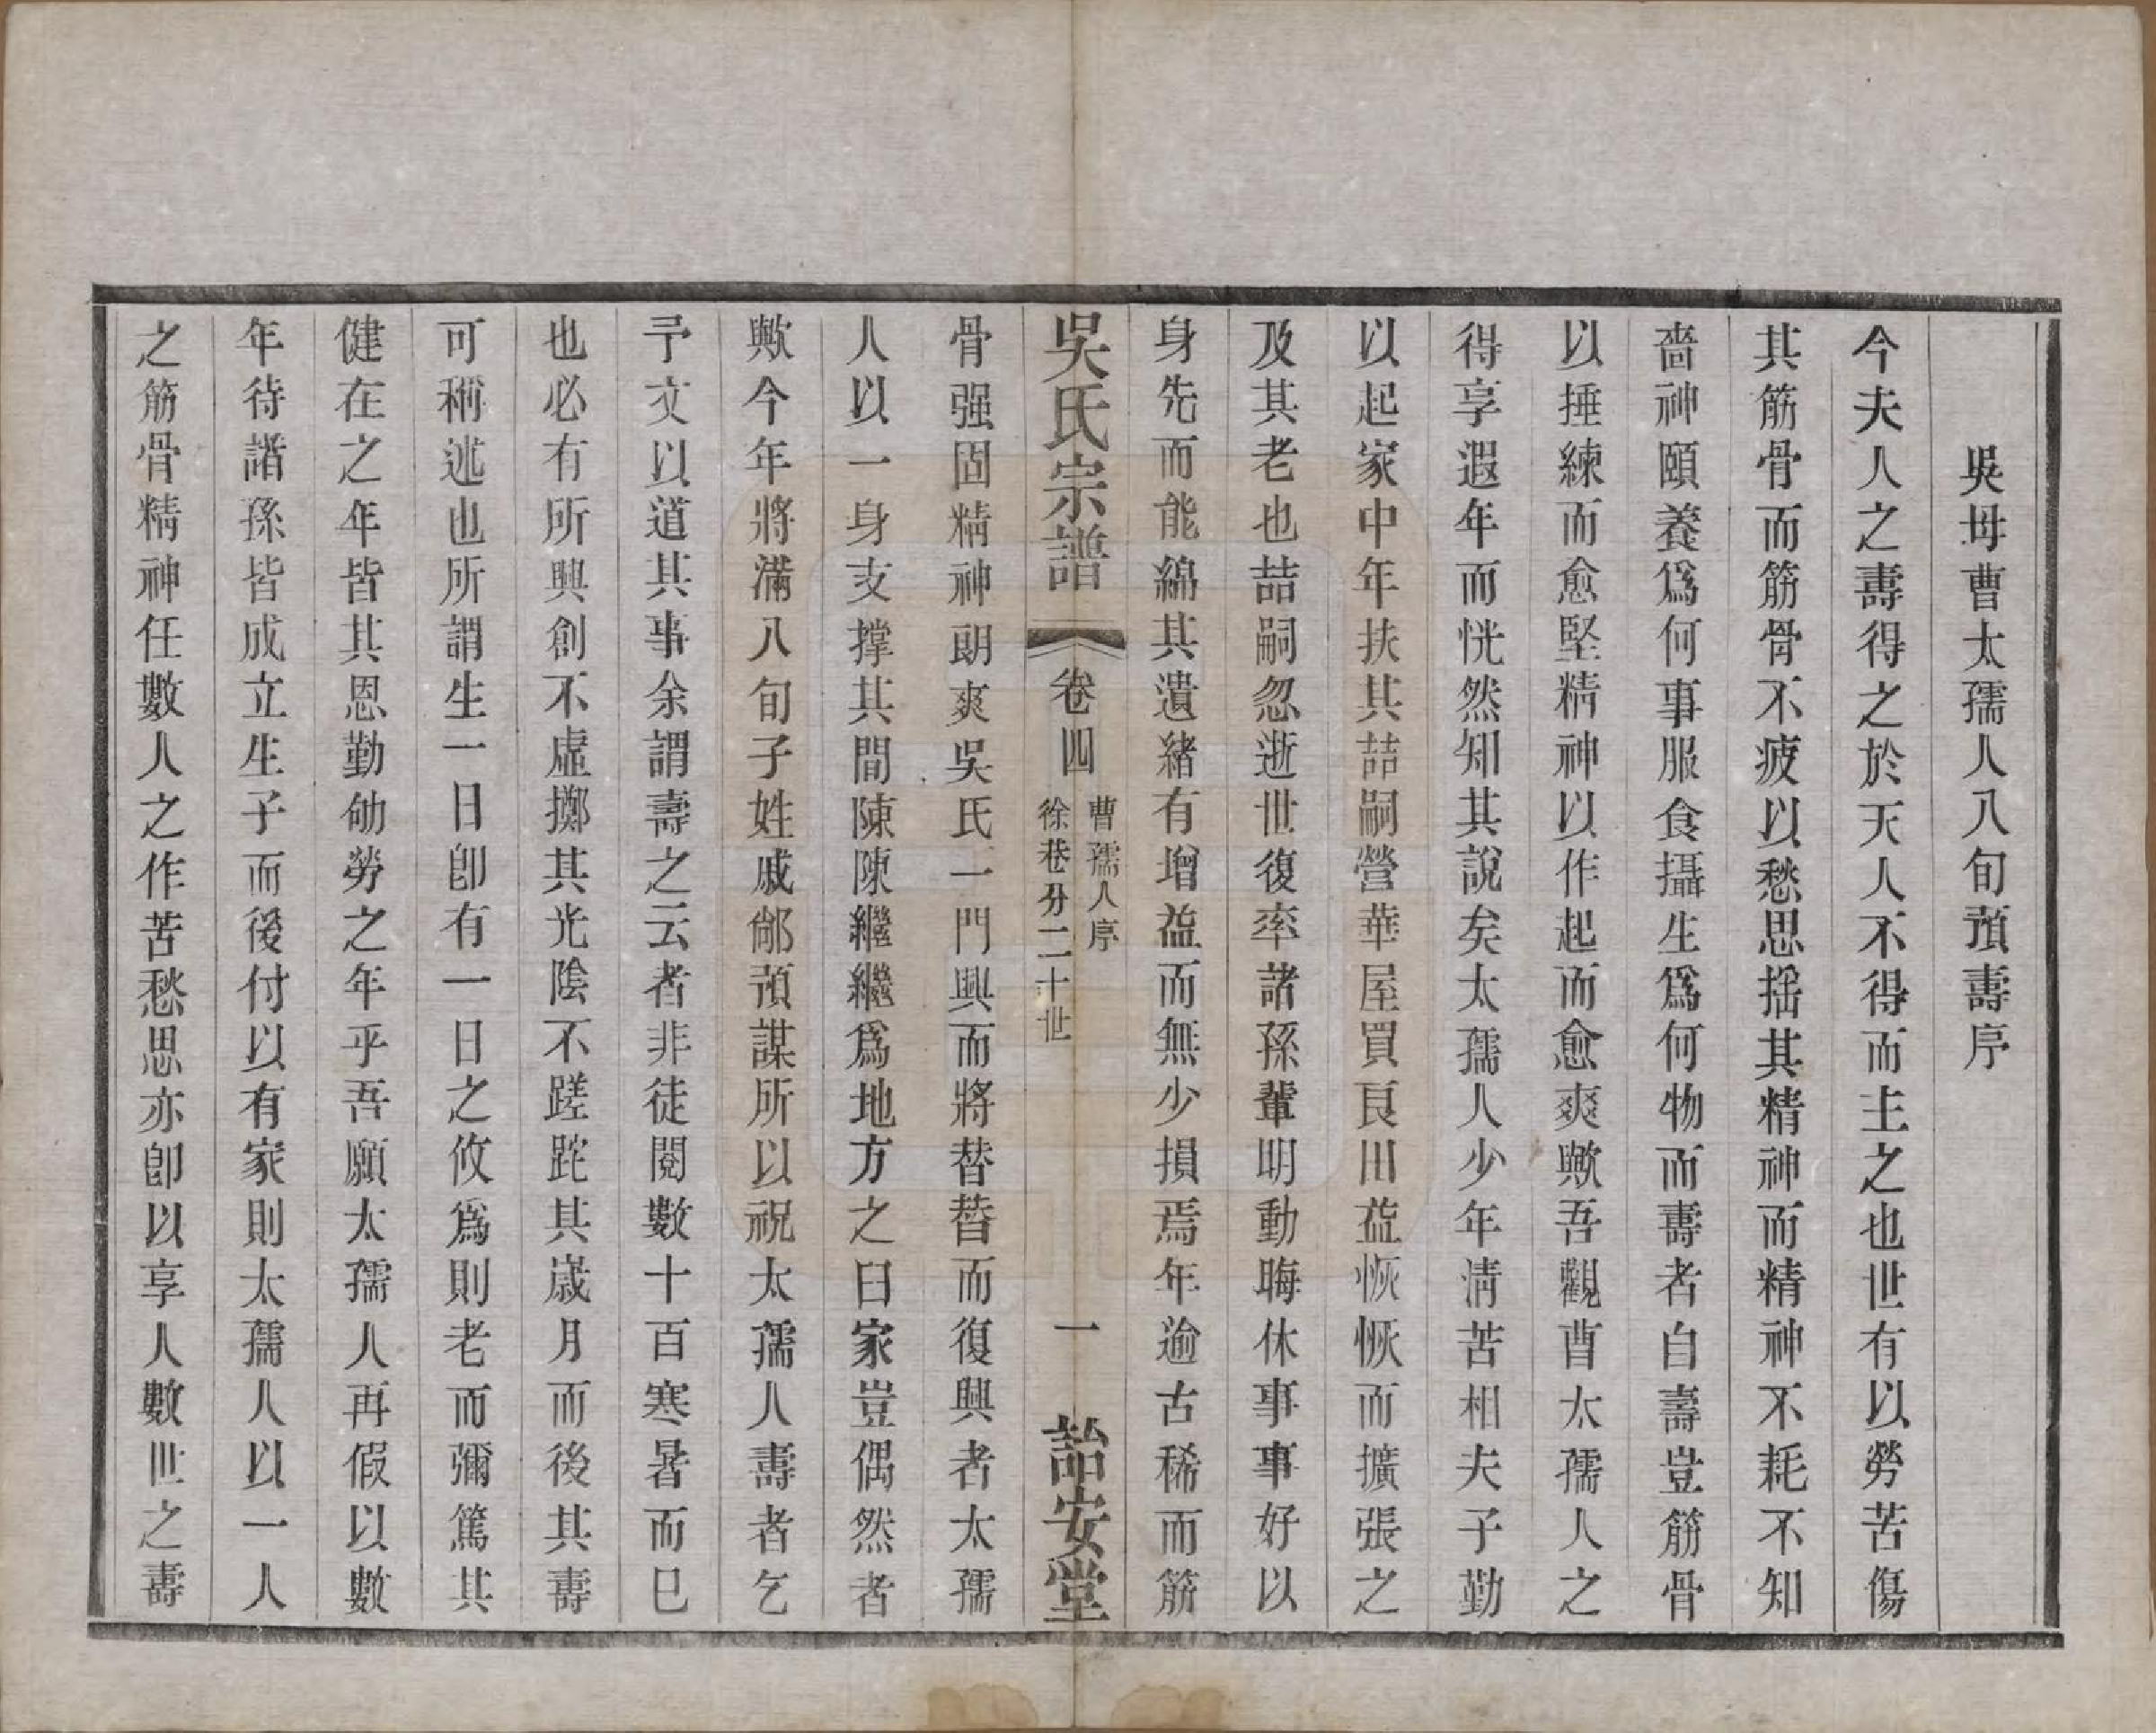 吳母曹太孺人八旬預壽序
今夫人之壽得之於天人不得而主之也世有以勞苦傷
其筋骨而筋骨不疲以愁思搖其精神而精神不耗不知
嗇神頤養爲何事服食攝生爲何物而壽者自壽豈筋骨
以捶練而愈堅精神以作起而愈爽歟吾觀曹太孺人之
得享遐年而恍然知其說矣太孺人少年淸苦相夫子勤
以起家中年扶其喆嗣營華屋買良田益恢恢而擴張之
及其老也喆嗣忽逝世復率諸孫輩明動晦休事事好以
身先而能綿其遺緒有增益而無少損焉年逾古稀而筋
吳氏宗譜
卷四
曹孺人序
徐巷分二十世
一
詒安堂
骨强固精神朗爽吳氏一門興而將替替而復興者太孺
人以一身支撐其間陳陳繼繼爲地方之曰家豈偶然者
歟今年將滿八旬子姓戚鄰預謀所以祝太孺人壽者乞
予文以道其事余謂壽之云者非徒閱數十百寒暑而已
也必有所興創不虛擲其光陰不蹉跎其歲月而後其壽
可稱述也所謂生一日卽有一日之攸爲則老而彌篤其
健在之年皆其恩勤劬勞之年乎吾願太孺人再假以數
年待諸孫皆成立生子而後付以有家則太孺人以一人
之筋骨精神任數人之作苦愁思亦卽以享人數世之壽